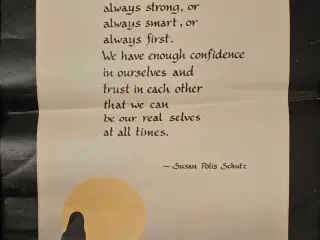 always strong, or
always smart, or
always first.
We have enough confidence
in ourselves and
trust in each other
that we can
be our real selves
at all times.
— Susan Polis Schutz